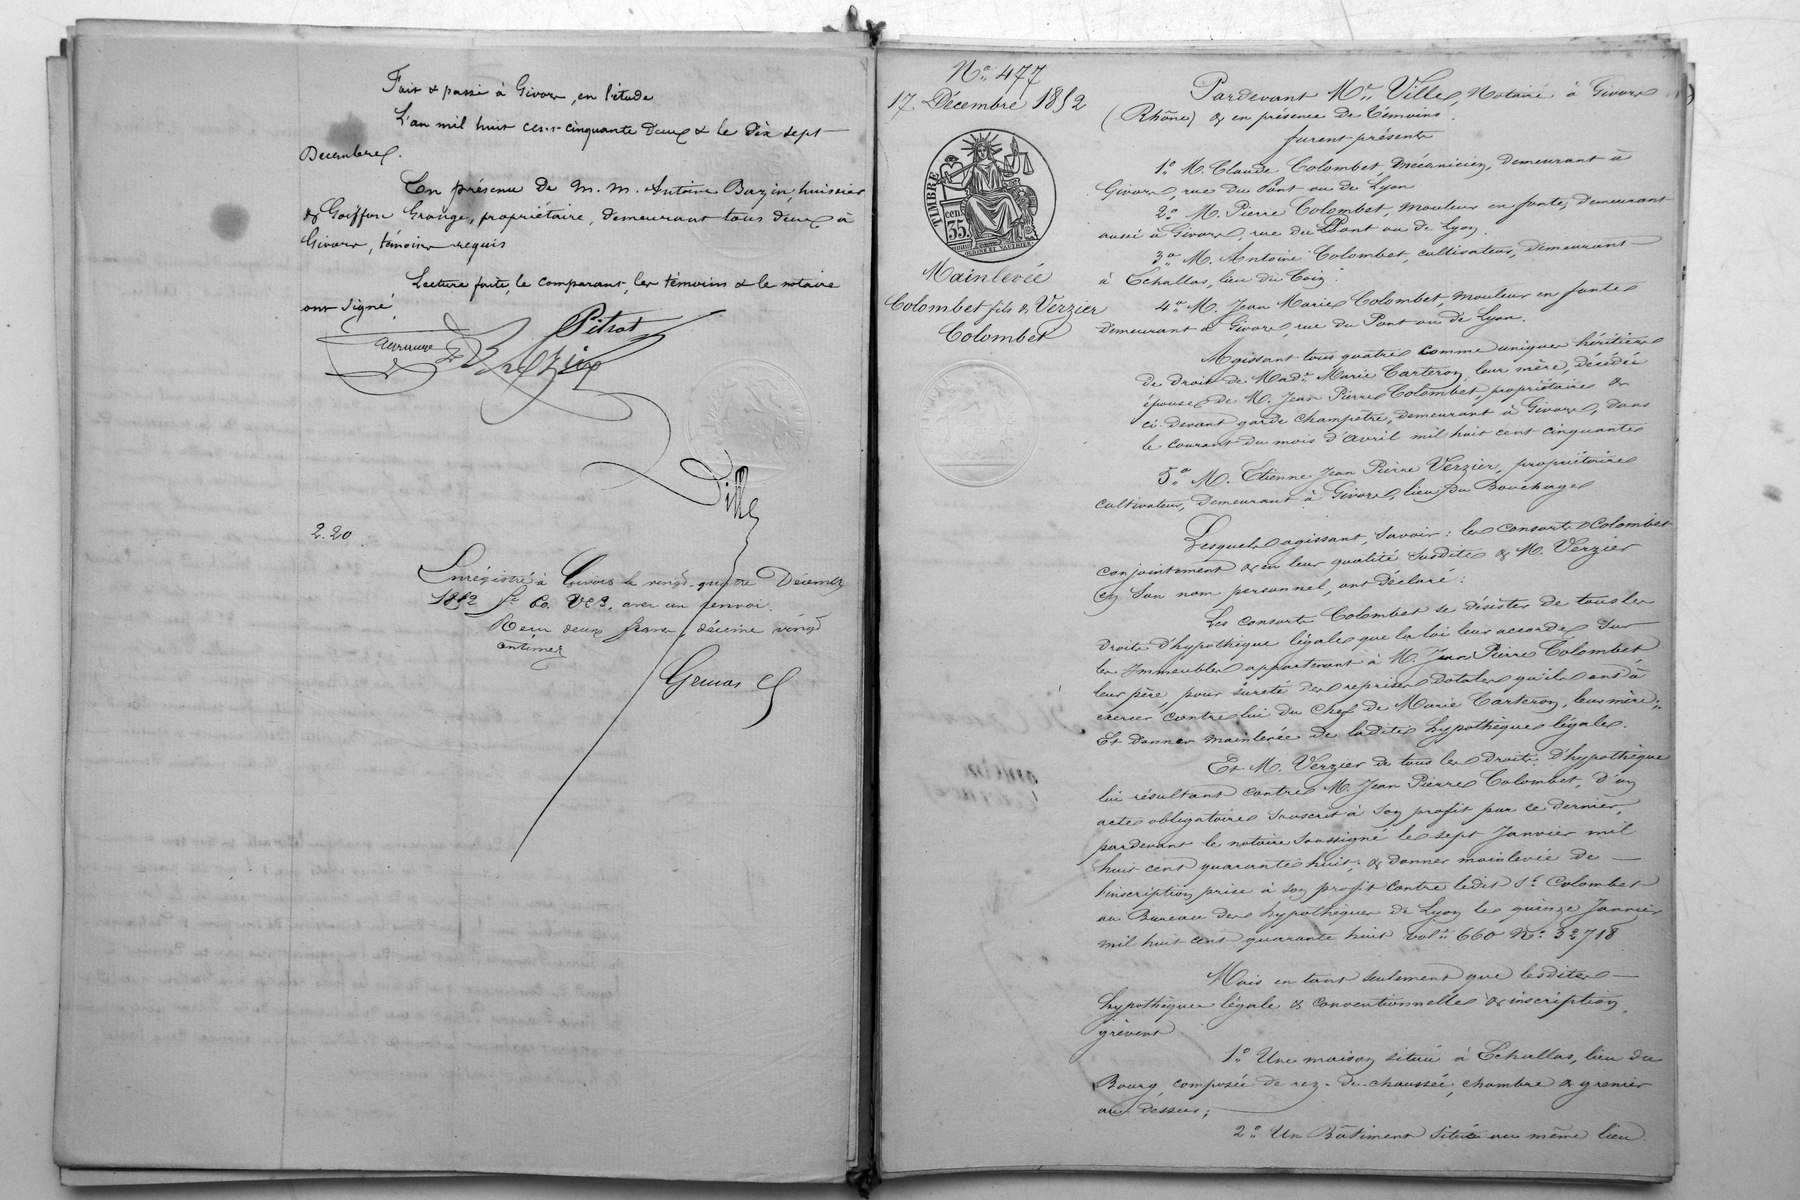 Fait & passé à Givors, en l'étude
L'an mil huit cent cinquante deux & le dix sept
Décembre.
En présence de M. M. Antoine Bazin, huissier
& Goiffon Grange, propriétaire, demeurant tous deux à
Givors, témoins requis
Lecture faite, le comparant, les témoins & le notaire
ont signé,
Pitrat
Bazin
Ville
2.20
Enregistré à Givors le vingt quatre Décembre
1852 fo 60 Vo avec un renvoi.
Reçu deux francs, décime vingt
centimes
No 477
17 Décembre 1852
TIMBRE
cen
35
Mainlevée
Colombet fils & Verzier
Colombet
Pardevant Me Ville, Notaire à Givors
(Rhône) & en présence de témoins.
furent présents
1o M. Claude Colombet, mécanicien, demeurant à
Givors, rue du Pont ou de Lyon
2o M. Pierre Colombet, mouleur en fonte, demeurant
aussi à Givors, rue du Pont ou de Lyon.
3o M. Antoine Colombet, cultivateur, demeurant
à Echallas, lieu du Coin
4o M. Jean Marie Colombet, mouleur en fonte
demeurant à Givors, rue du Pont ou de Lyon.
Agissant tous quatre comme uniques héritiers
de droit de Made Marie Carteron, leur mère, décédée
épouse de M. Jean Pierre Colombet, propriétaire &
ci-devant garde champêtre, demeurant à Givors, dans
le courant du mois d'avril mil huit cent cinquante
5o M. Etienne Jean Pierre Verzier, propriétaire
cultivateur, demeurant à Givors, lieu du Bouchage
Lesquels agissant, savoir : les consorts Colombet
conjointement & en leur qualité susdite & M. Verzier
en son nom personnel, ont déclaré :
Les consorts Colombet se désister de tous les
droits d'hypothèque légale que la loi leur accorde sur
les immeubles appartenant à M. Jean Pierre Colombet
leur père pour sûreté des reprises dotales qu'ils ont à
exercer contre lui du chef de Marie Carteron, leur mère ;
Et donner mainlevée de ladite hypothèque légale.
Et M. Verzier de tous les droits d'hypothèque
lui résultant contre M. Jean Pierre Colombet, d'un
acte obligatoire souscrit à son profit par ce dernier,
pardevant le notaire soussigné le sept Janvier mil
huit cent quarante huit, & donner mainlevée de
l'inscription prise à son profit contre ledit Sr Colombet
au Bureau des hypothèques de Lyon le quinze Janvier
mil huit cent quarante huit vol. 660 No 32718
Mais en tant seulement que lesdites
hypothèques légale & conventionnelle & inscription,
grèvent
1o Une maison située à Echallas, lieu du
Bourg composée de rez-de-chaussée, chambre & grenier
au dessus ;
2o Un Bâtiment situé au même lieu